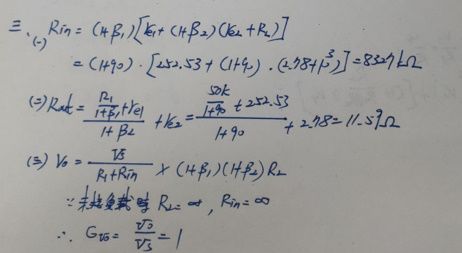 三、(一) Rin = (1+β₁)[re₁ + (1+β₂)(re₂ + RL)]
= (1+90)·[252.53 + (1+90)·(2.78+10³)] = 8327kΩ
(二) Rout = ((R₁/(1+β₁) + re₁)/(1+β₂)) + re₂ = ((50k/(1+90) + 252.53)/(1+90)) + 2.78 = 11.59Ω
(三) Vo = (Vs/(R₁+Rin)) × (1+β₁)(1+β₂)RL
∵ 未接負載時 RL = ∞, Rin = ∞
∴ Gvo = Vo/Vs = 1